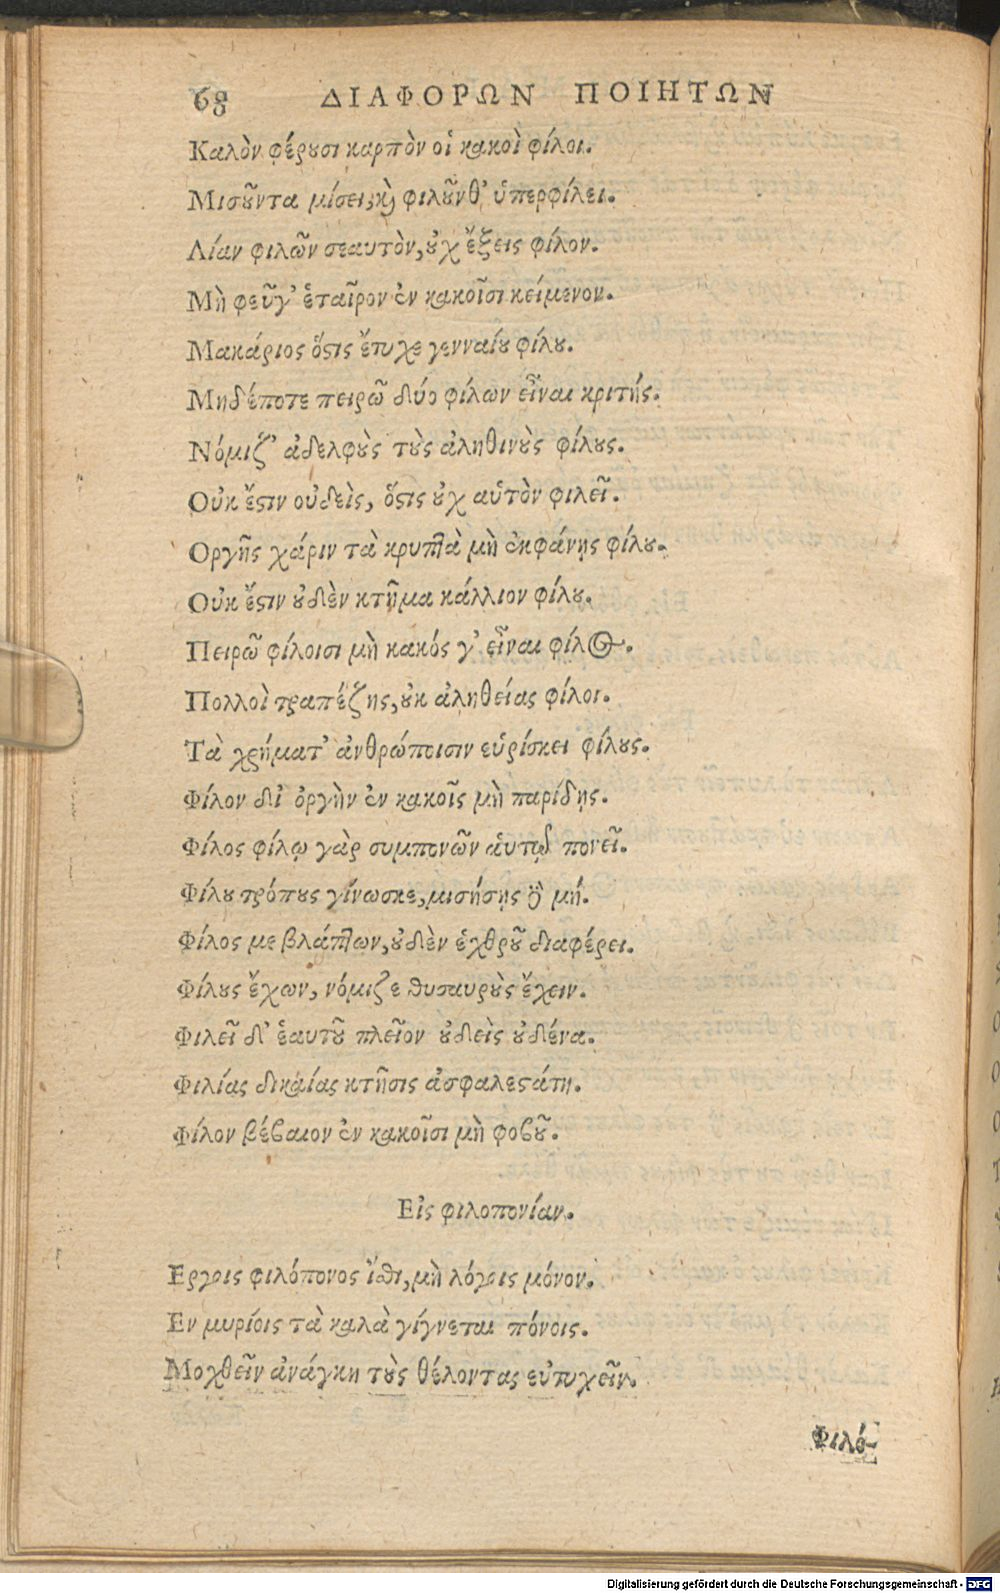 68 ΔΙΑΦΟΡΩΝ ΠΟΙΗΤΩΝ
Καλὸν φέρȣσι καρπὸν οἱ κακοὶ φίλοι.
Μισȣ͂ντα μίσει, ϗ φιλȣ͂νθ᾽ ὑπερφίλει.
Λίαν φιλῶν σεαυτὸν, ȣ̓χ ἕξεις φίλον.
Μὴ φεῦγ᾽ ἑταῖρον ἐν κακοῖσι κείμενον.
Μακάριος ὅϛις ἔτυχε γενναίȣ φίλȣ.
Μηδέποτε πειρῶ δύο φίλων εἶναι κριτής.
Νόμιζ᾽ ἀδελφȣ̀ς τȣ̀ς ἀληθινȣ̀ς φίλȣς.
Οὐκ ἔϛιν οὐδεὶς, ὅϛις ȣ̓χ αὑτὸν φιλεῖ.
Οργῆς χάριν τὰ κρυπτὰ μὴ ἐκφάνῃς φίλȣ.
Οὐκ ἔϛιν ȣ̓δὲν κτῆμα κάλλιον φίλȣ.
Πειρῶ φίλοισι μὴ κακός γ᾽ εἶναι φίλος.
Πολλοὶ τραπέζης, ȣ̓κ ἀληθείας φίλοι.
Τὰ χρήματ᾽ ἀνθρώποισιν εὑρίσκει φίλȣς.
Φίλον δι᾽ ὀργὴν ἐν κακοῖς μὴ παρίδῃς.
Φίλος φίλῳ γὰρ συμπονῶν αὑτῷ πονεῖ.
Φίλȣ τρόπȣς γίνωσκε, μισήσῃς δὲ μή.
Φίλος με βλάπτων, ȣ̓δὲν ἐχθρȣ͂ διαφέρει.
Φίλȣς ἔχων, νόμιζε θυσαυρȣ̀ς ἔχειν.
Φιλεῖ δ᾽ ἑαυτȣ͂ πλεῖον ȣ̓δεὶς ȣ̓δένα.
Φιλίας δικαίας κτῆσις ἀσφαλεϛάτη.
Φίλον βέβαιον ἐν κακοῖσι μὴ φοβȣ͂.
Εἰς φιλοπονίαν.
Εργοις φιλόπονος ἴσθι, μὴ λόγοις μόνον.
Εν μυρίοις τὰ καλὰ γίγνεται πόνοις.
Μοχθεῖν ἀνάγκη τȣ̀ς θέλοντας εὐτυχεῖν.
Φιλό-
Digitalisierung gefördert durch die Deutsche Forschungsgemeinschaft - DFG